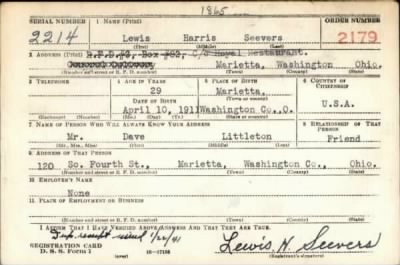 1865
SERIAL NUMBER 1 NAME (Print) ORDER NUMBER
2214 Lewis Harris Seevers 2179
(First) (Middle) (Last)
2 ADDRESS (Print) R.F.D.#3, Box #82, C/O Royal Restaurant.
Marietta, Washington Ohio.
(Number and street or R. F. D. number) (Town) (County) (State)
3 TELEPHONE 4 AGE IN YEARS 5 PLACE OF BIRTH 6 COUNTRY OF CITIZENSHIP
29 Marietta,
DATE OF BIRTH (Town or county)
April 10, 1911 Wash.Co.,O. U.S.A.
(Exchange) (Number) (Mo.) (Day) (Yr.) (State or country)
7 NAME OF PERSON WHO WILL ALWAYS KNOW YOUR ADDRESS 8 RELATIONSHIP OF THAT PERSON
Mr. Dave Littleton Friend
(Mr., Mrs., Miss) (First) (Middle) (Last)
9 ADDRESS OF THAT PERSON
120 So. Fourth St., Marietta, Washington Co., Ohio.
(Number and street or R. F. D. number) (Town) (County) (State)
10 EMPLOYER'S NAME
None
11 PLACE OF EMPLOYMENT OR BUSINESS
(Number and street or R. F. D. number) (Town) (County) (State)
I AFFIRM THAT I HAVE VERIFIED ABOVE ANSWERS AND THAT THEY ARE TRUE.
REGISTRATION CARD
D. S. S. Form 1 16—17105 Lewis H. Seevers
(Registrant's signature)